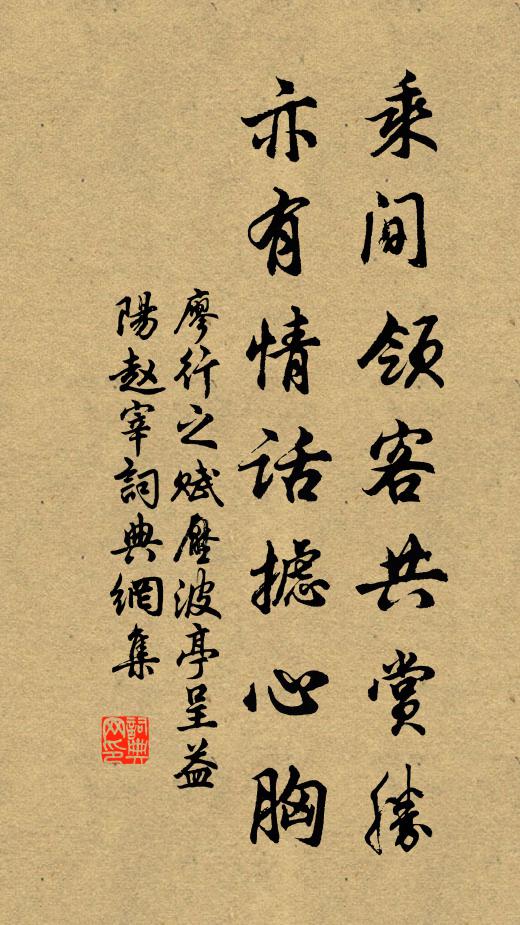 乘间领客共赏胜
亦有情话摅心胸
廖行之赋压波亭呈益
阳赵宰词典網集
詞典
网印